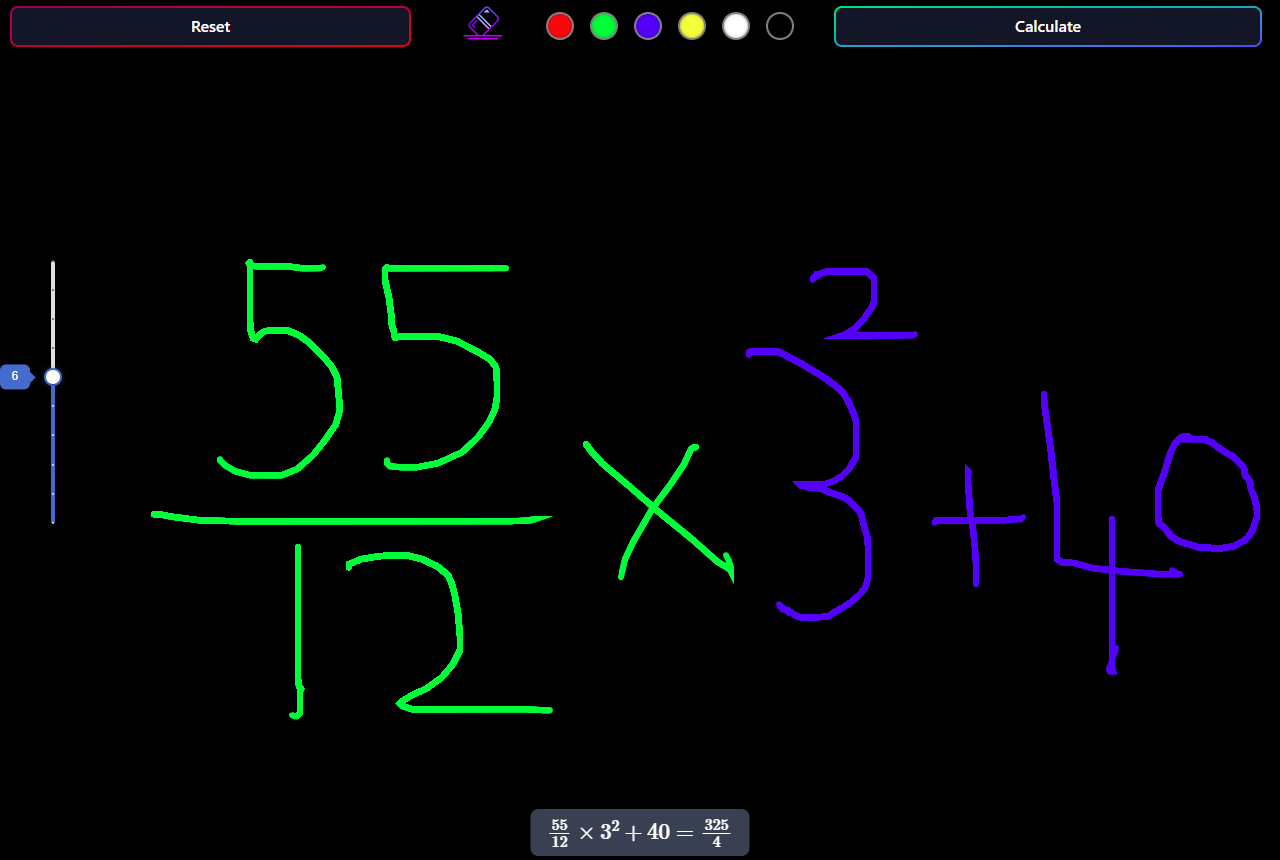 Reset Calculate
6
55/12 × 3² + 40
55/12 × 3² + 40 = 325/4